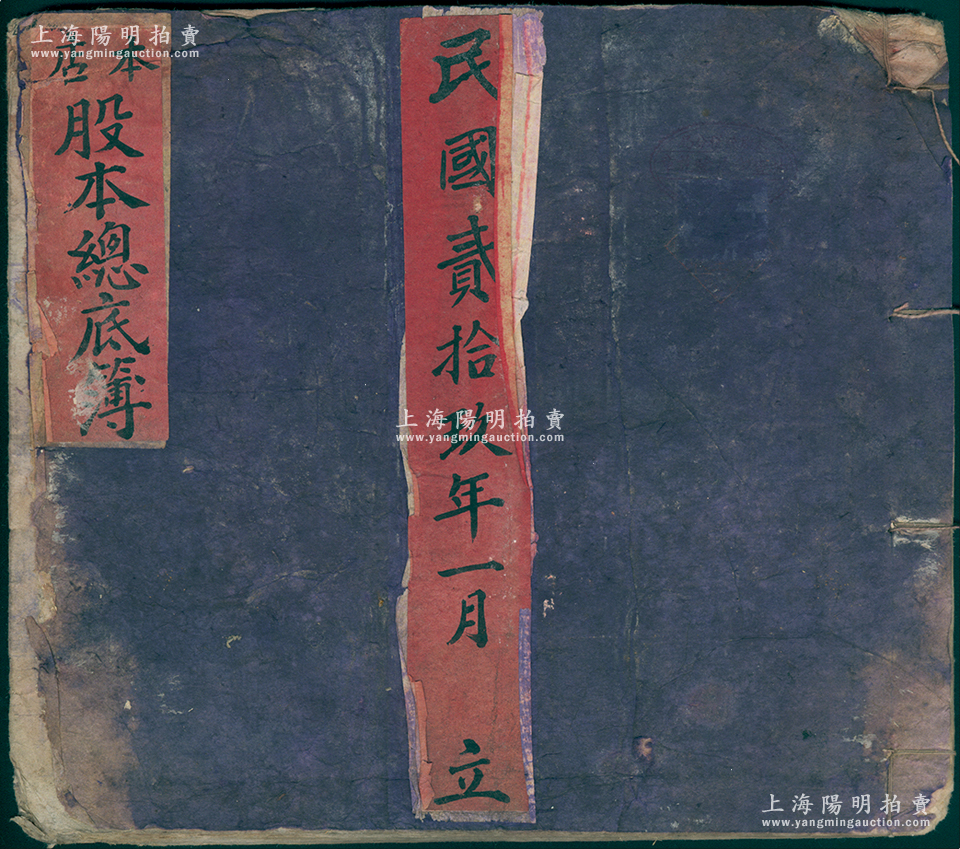 民國貳拾玖年一月 立
本店
股本總底簿
上海陽明拍賣
www.yangmingauction.com
上海陽明拍賣
www.yangmingauction.com
上海陽明拍賣
www.yangmingauction.com